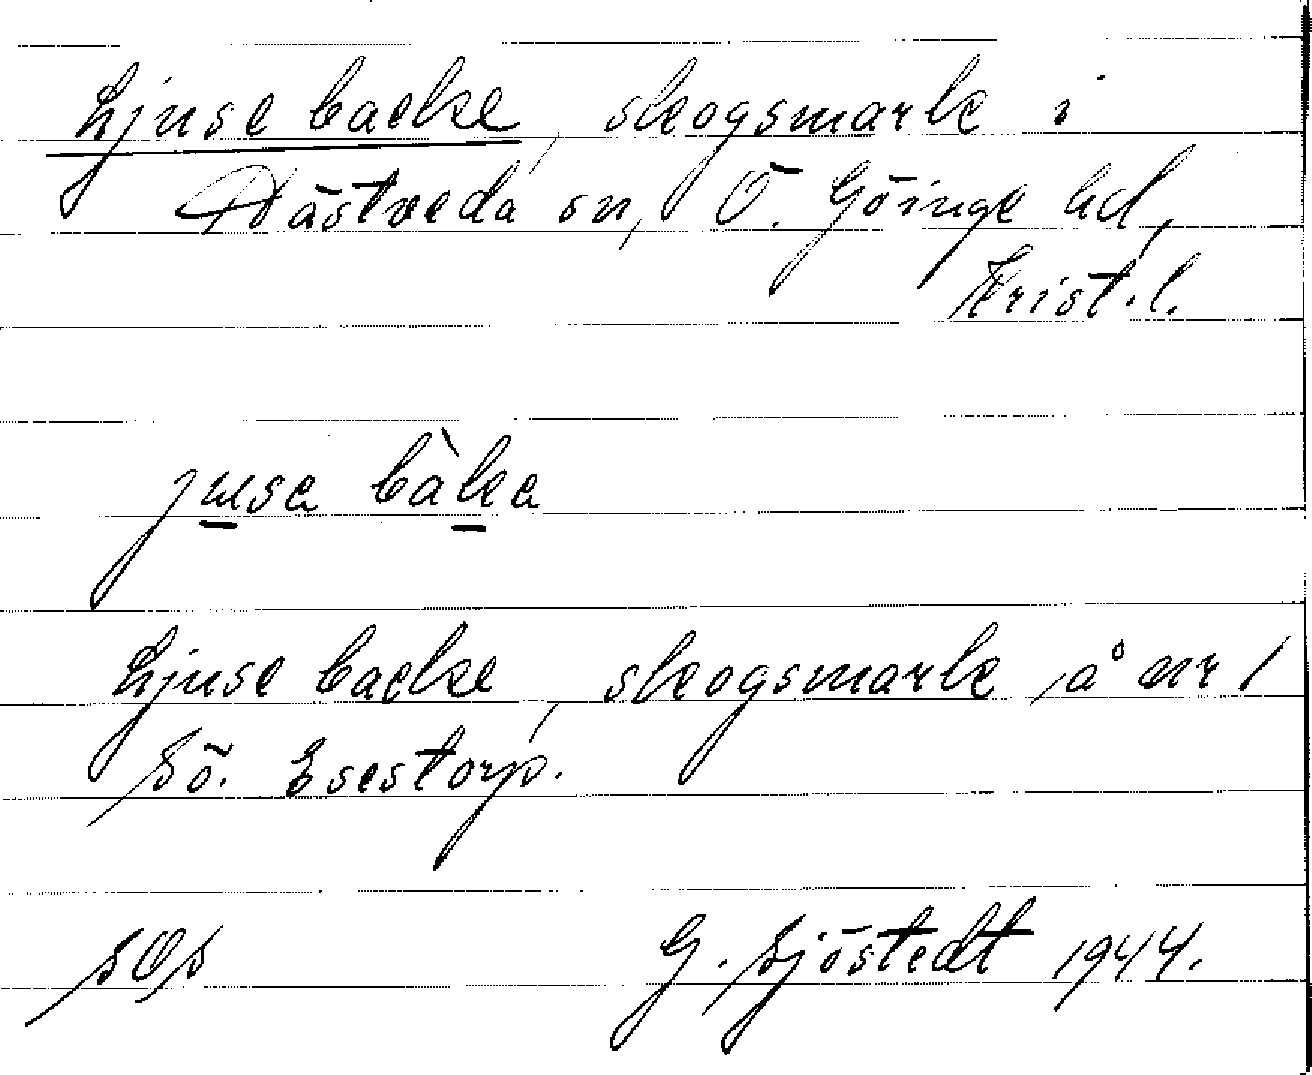 Ljuse backe, skogsmark i
Västveda sn, Ö. Göinge hd,
Krist.l.
jusa bàka
Ljuse backe, skogsmark, å nr 1
Sö. Esestorp.
G. Sjöstedt 1944.